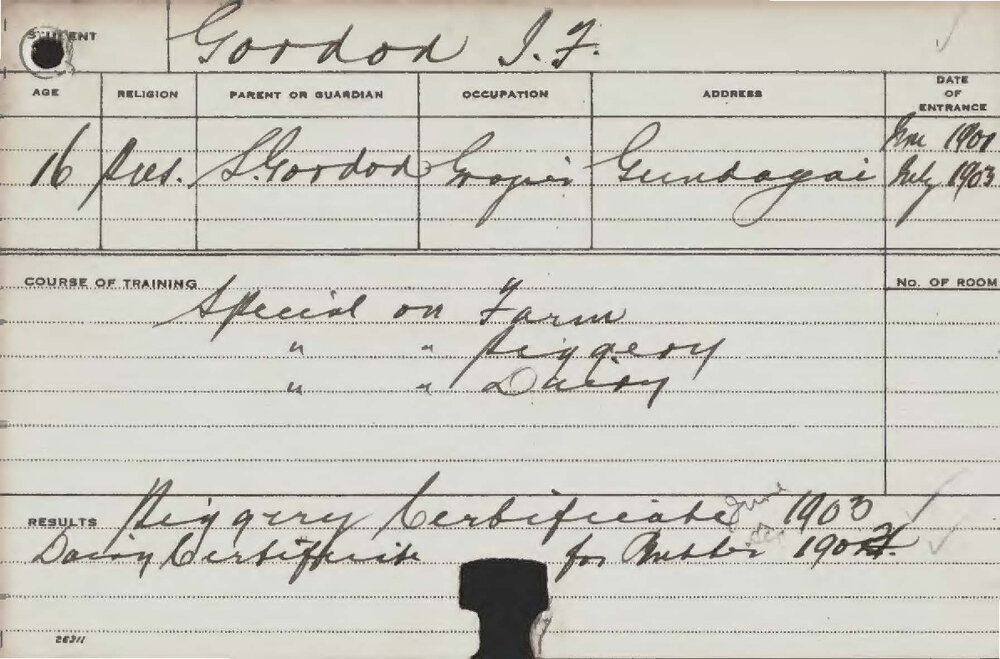 STUDENT Gordon I. F.
AGE RELIGION PARENT OR GUARDIAN OCCUPATION ADDRESS DATE OF ENTRANCE
16 Pres. S. Gordon Grazier Gundagai June 1901
July 1903
COURSE OF TRAINING Special on Farm NO. OF ROOM
" " Piggery
" " Dairy
RESULTS Piggery Certificate June 1903
Dairy Certificate for Butter
26311